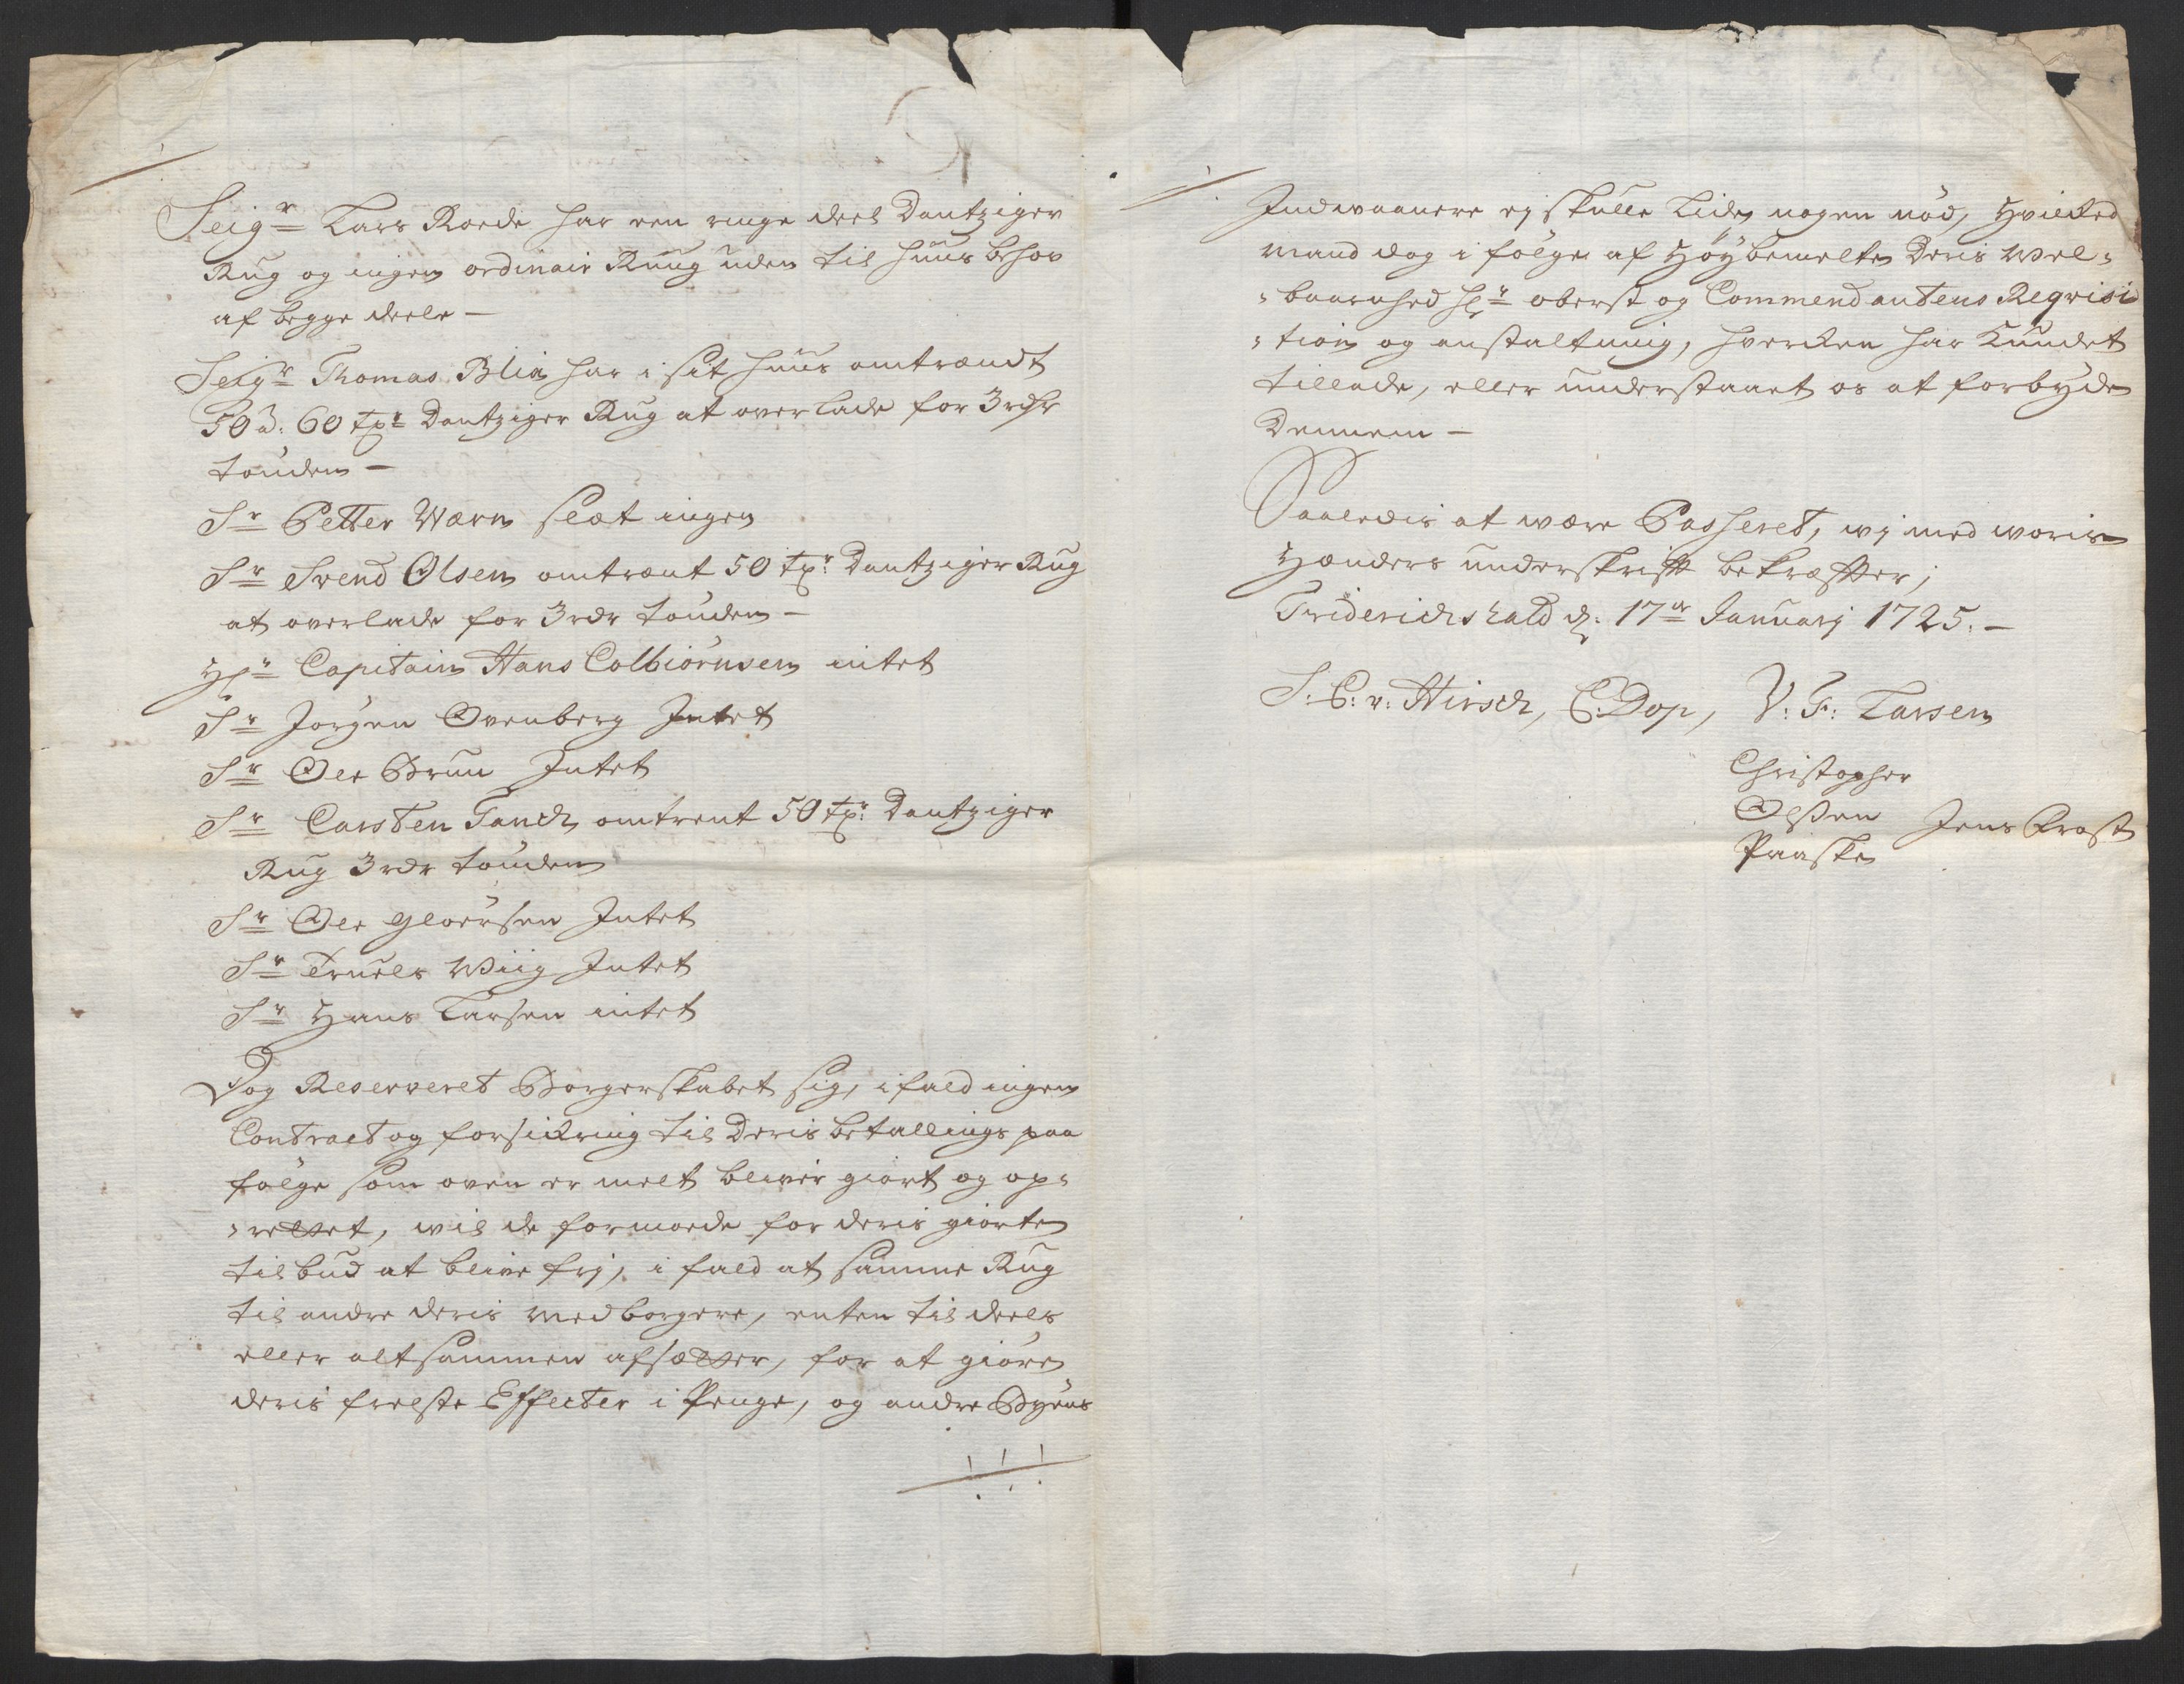 Seigr Lars Roede har een ringe deel Dantziger
Rug og ingen ordinair Ruug uden til huus behov
af begge deele —
Seigr Thomas Blix har i sit huus omtrændt
50 à: 60 tr Dantziger Rug at overlade for 3 rdr
tønden —
Sr Petter Wærn slæt ingen
Sr Svend Olsen omtrænt 50 tr: Dantziger Rug
at overlade for 3 rdr tønden —
Hr Capitain Hans Colbiörnsen intet
Sr Jörgen Ovenberg Intet
Sr Ole Bruun Intet
Sr Carsten Tanck omtrent 50 tr: Dantziger
Rug 3 rdr tønden
Sr Ole Gloersen Intet
Sr Truels Wiig Intet
Sr Hans Larsen intet
Dog Reserveret Borgerskabet sig, i fald ingen
Contract og forsikring til Deris betallings paa
følge som oven er melt blivir giort og op-
-rettet, wil de formode for deris giorte
tilbud at blive frj, i fald at samme Rug
til andre deris medborgere, enten til deels
eller altsammen afsætter, for at giøre
deris fleste Effecter i Penge, og andre Byens
Indwaanere ej skulle Lide nogen nød, Hvilked
mand dog i følge af Høybemelte Deris Wel-
-baarnhed Hr oberst og Commendantens Reqvisi
-tion og anstaltning, hverken har Kundet
tillade, eller understaaet os at forbyde
Dennem —
Saaledis at være Passeret, wj med woris
Hænders underskrifft bekræffter;
Friderichshald d: 17de Januarj 1725. —
S. C: v: Hirsch, C: Dop, V: F: Larsen
Christopher
Olsen Jens Brost
Paaske